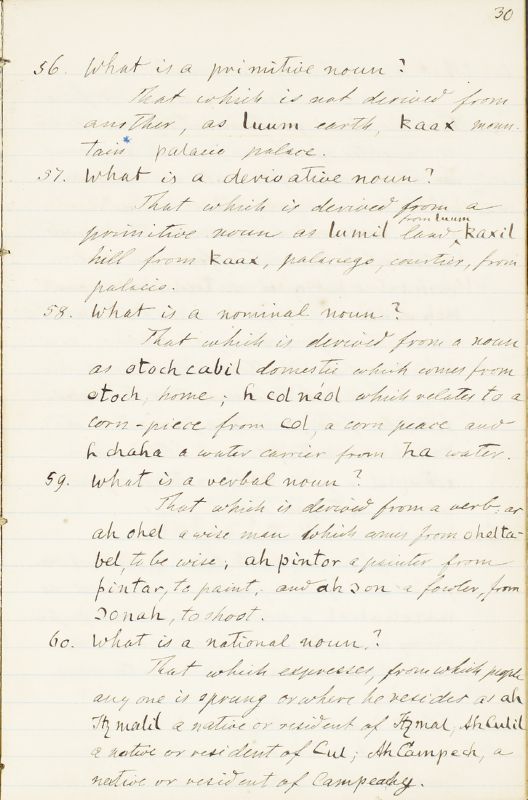 30
56. What is a primitive noun?
That which is not derived from
another, as luum earth, kaax moun-
tain palacio palace.
57. What is a derivative noun?
That which is derived from a
from luum
primitive noun as lumil land kaxil
hill from kaax, palaciego, courtier, from
palacio.
58. What is a nominal noun?
That which is derived from a noun
as otoch cabil domestic which comes from
otoch, home; h col náol which relates to a
corn-piece from col, a corn peace and
h chaha a water carrier from ha water.
59. What is a verbal noun?
That which is derived from a verb, as
ah ohel a wise man which comes from ohelta-
bel, to be wise; ah pintor a painter from
pintar, to paint, and ah ɔon a fowler, from
ɔonah, to shoot.
60. What is a national noun?
That which expresses, from which people
any one is sprung or where he resides as ah
Itzmalil a native or resident of Itzmal, Ah Culil
a native or resident of Cul; Ah Campech, a
native or resident of Campeachy.